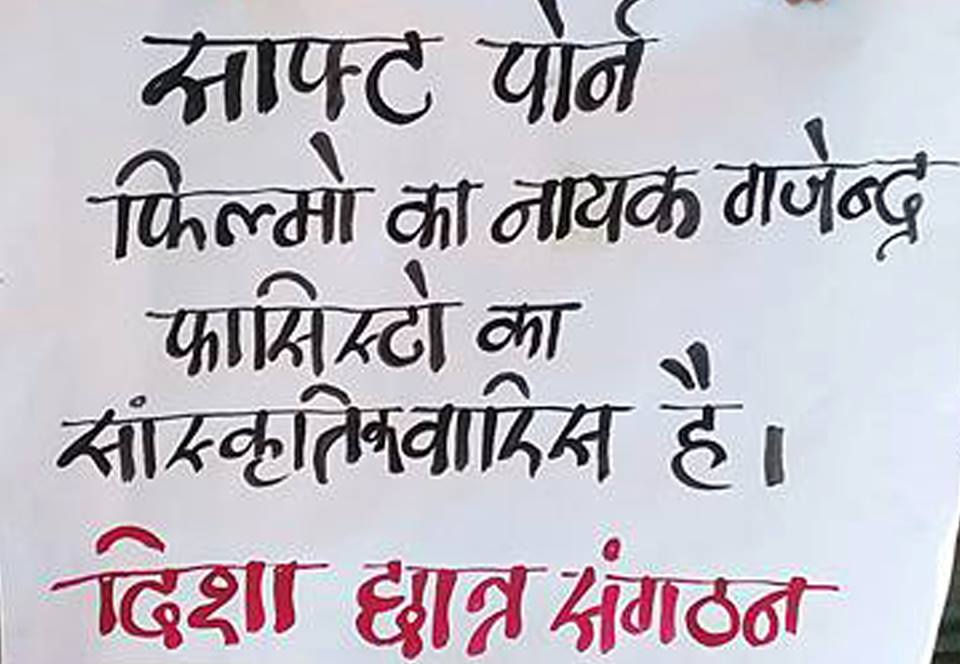 साफ्ट पोर्न
फिल्मो का नायक गजेन्द्र
फासिस्टो का
सांस्कृतिक वारिस है।
दिशा छात्र संगठन